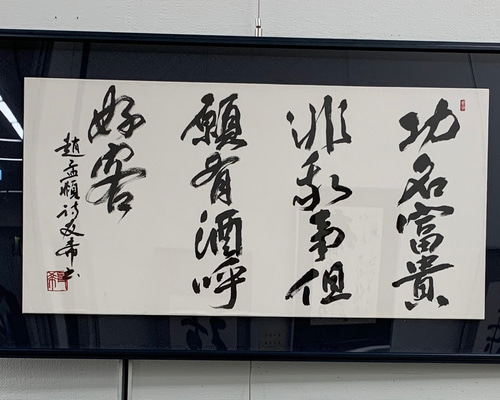 功名富貴
非我事但
願有酒呼
好客
趙孟頫詩